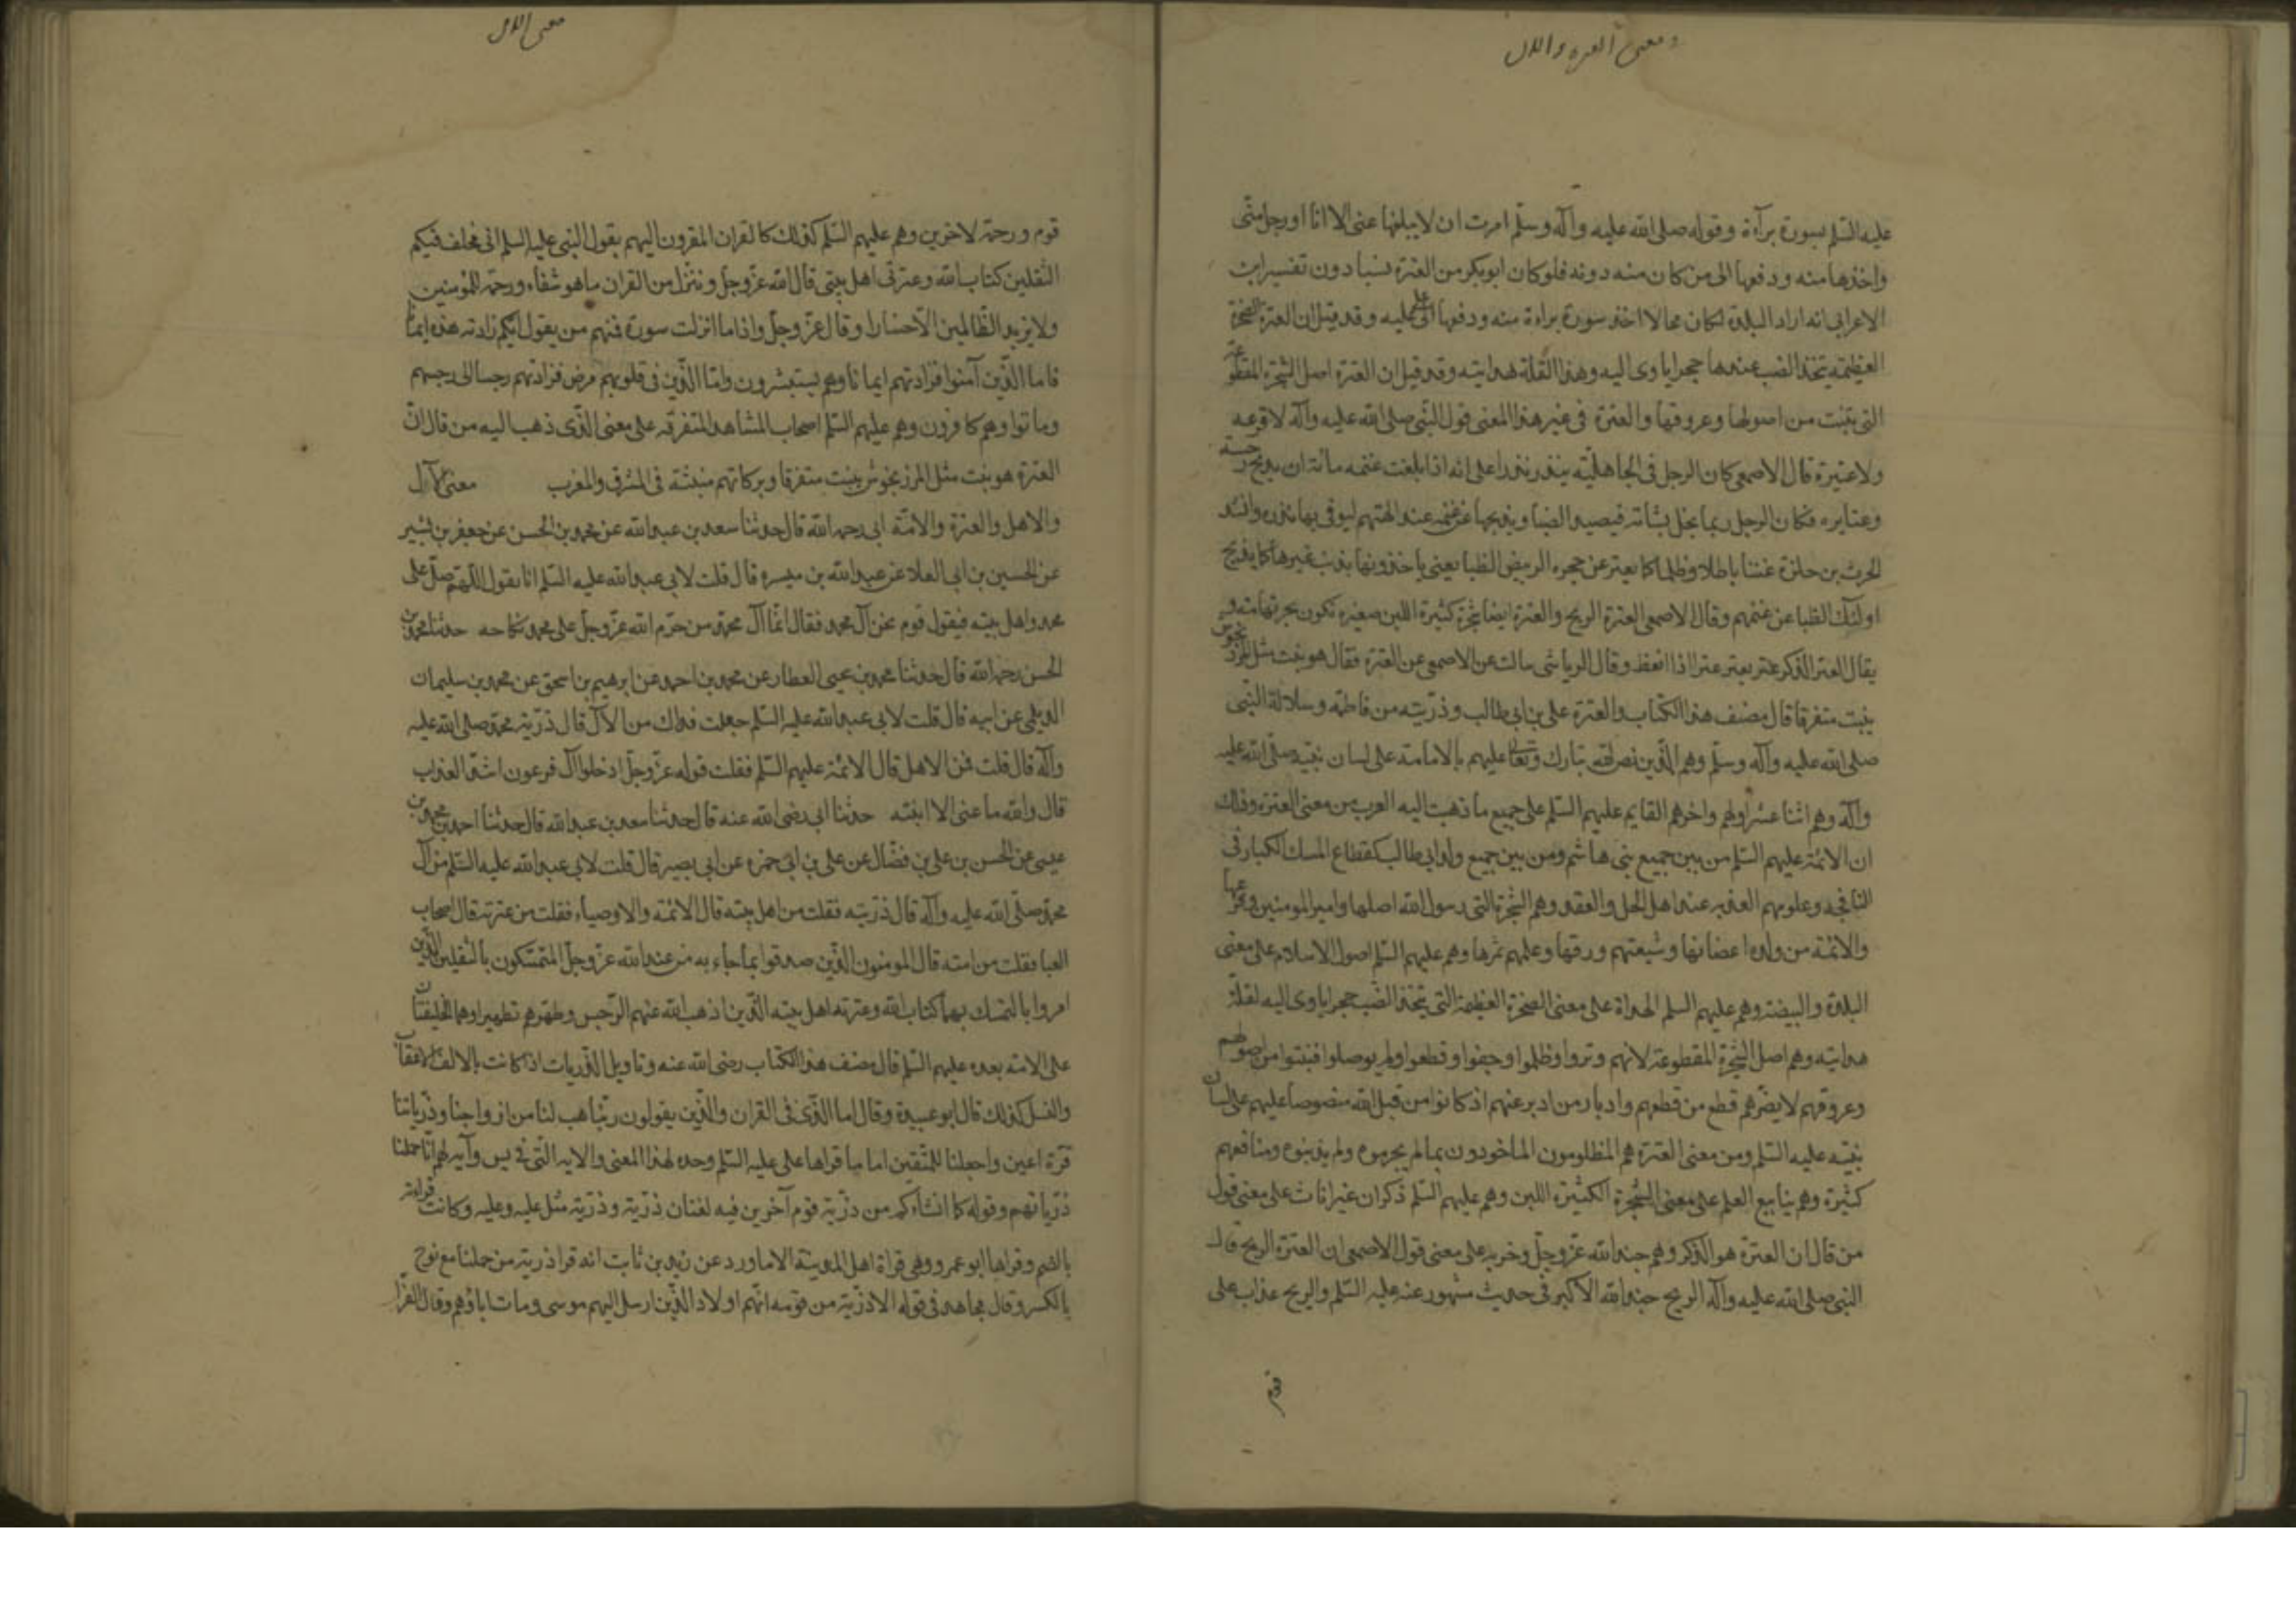 ومعنى العتره والال
عليه السّلم بسورة برآءة وقوله صلى الله عليه وآله وسلّم امرت ان لا يبلغها عنى الا انا او رجل منّى
واخذها منه ودفعها الى من كان منه دونه فلو كان ابوبكر من العترة نسبا دون تفسير ابن
الاعرابى انه اراد البلدة لكان محالا اخذ سورة براءة منه ودفعها الى على عليه وقد قيل ان العترة الصخرة
العظيمة يتخذ الضب عندها جحرا ياوى اليه وهذا لقلة هدايته وقد قيل ان العترة اصل الشجرة المقطوعة
التى تنبت من اصولها وعروقها والعترة فى غير هذا المعنى قول النّبى صلى الله عليه وآله لا فرعه
ولا عتيرة قال الاصمعى كان الرجل فى الجاهليّة ينذر نذرا على انه اذا بلغت غنمه مائة ان يذبح رجبيته
وعتايره فكان الرجل ربما بخل بشاته فيصيد الضبا ويذبحها عن غنمه عند الهتهم ليوفى بها نذره وانشد
الحرث بن حلزة عننا باطلا وظلما كما تعتر عن حجره الربيض الظبا يعنى ياخذونها بذنب غيرها كما يذبح
اولئك الظبا عن غنمهم وقال الاصمعى العترة الريح والعترة ايضا شجرة كثيرة اللبن صغيره تكون بحر تهامة و
يقال العتر الذكر عتر يعتر عترا اذا انعظ وقال الرياشى سالت عن الاصمعى عن العترة فقال هو نبت مثل المرزنجوش
ينبت متفرقا قال مصنف هذا الكتاب والعترة على بن ابى طالب وذرّيته من فاطمه وسلالة النّبى
صلى الله عليه وآله وسلّم وهم الّذين نص الله تبارك وتعالى عليهم بالامامة على لسان نبيّه صلّى الله عليه
وآله وهم اثنا عشر اولهم واخرهم القايم عليهم السّلم على جميع ما ذهبت اليه العرب من معنى العترة وذلك
ان الائمّة عليهم السّلم من بين جميع بنى هاشم ومن بين جميع ولد ابى طالب كقطاع المسك الكبار فى
النافجه وعلومهم العذبه عند اهل الحل والعقد وهم الشجرة التى رسول الله اصلها وامير المومنين وفرعها
والائمّة من ولده اعضانها وشيعتهم ورقها وعلمهم ثمرها وهم عليهم السّلم اصول الاسلام على معنى
البلدة والبيضة وهم عليهم السلم الهداة على معنى الصخرة العظيمة التى يتخذ الضّب جحرا ياوى اليه لقلة
هدايته وهم اصل الشجرة المقطوعة لانهم وتروا وظلموا وجفوا وقطعوا ولم يوصلوا فنبتوا من اصولهم
وعروقهم لا يضرّهم قطع من قطعهم وادبار من ادبر عنهم اذ كانوا من قبل الله منصوصا عليهم على لسان
نبيّه عليه السّلم ومن معنى العترة هم المظلومون الماخوذون بما لم يجرموه ولم يذنبوه ومنافعهم
كثيرة وهم ينابيع العلم على معنى الشجرة الكثيرة اللبن وهم عليهم السّلم ذكران غير اناث على معنى قول
من قال ان العترة هو الذكر وهم جند الله عزّ وجلّ وحزبه على معنى قول الاصمعى ان العترة الريح قال
النبى صلى الله عليه وآله الريح جند الله الاكبر فى حديث مشهور عنه عليه السّلم والريح عذاب على
قوم
معنى الال
قوم ورحمة لاخرين وهم عليهم السّلم كذلك كالقران المقرون اليهم بقول النبى عليه السلم انى مخلف فيكم
الثقلين كتاب الله وعترتى اهل بيتى قال الله عزّ وجلّ وننزّل من القران ما هو شفاء ورحمة للمؤمنين
ولا يزيد الظّالمين الّا خسارا وقال عزّ وجلّ واذا ما انزلت سورة فمنهم من يقول ايّكم زادته هذه ايمانا
فاما الذّين آمنوا فزادتهم ايمانا وهم يستبشرون وامّا الّذين فى قلوبهم مرض فزادتهم رجسا الى رجسهم
وماتوا وهم كافرون وهم عليهم السّلم اصحاب المشاهد المتفرقه على معنى الذّى ذهب اليه من قال انّ
العترة هو نبت مثل المرزنجوش ينبت متفرقا وبركاتهم منبثّة فى المشرق والمغرب معنى الآل
والاهل والعترة والامّة ابى رحمه الله قال حدثنا سعد بن عبد الله عن محمد بن الحسن عن جعفر بن بشير
عن الحسين بن ابى العلا عن عبد الله بن ميسره قال قلت لابى عبد الله عليه السّلم انا نقول اللّهم صلّ على
محمد واهل بيته فيقول قوم نحن آل محمد فقال انّما آل محمّد من حرّم الله عزّ وجلّ على محمد نكاحه حدثنا محمد بن
الحسن رحمه الله قال حدثنا محمد بن يحيى العطار عن محمد بن احمد عن ابرهيم بن اسحق عن محمد بن سليمان
الديلمى عن ابيه قال قلت لابى عبد الله عليه السّلم جعلت فداك من الآل قال ذرّية محمّد صلى الله عليه
وآله قال قلت فمن الاهل قال الائمّة عليهم السّلم فقلت قوله عزّ وجلّ ادخلوا آل فرعون اشدّ العذاب
قال والله ما عنى الا ابنته حدثنا ابى رضى الله عنه قال حدثنا سعد بن عبد الله قال حدثنا احمد بن محمد بن
عيسى عن الحسن بن على بن فضّال عن على بن ابى حمزه عن ابى بصير قال قلت لابى عبد الله عليه السّلم من آل
محمّد صلّى الله عليه وآله قال ذرّيته فقلت من اهل بيته قال الائمّة والاوصياء فقلت من عترته قال اصحاب
العبا فقلت من امته قال المومنون الّذين صدقوا بما جاء به من عند الله عزّ وجلّ المتمسّكون بالثقلين الذّين
امروا بالتمسك بهما كتاب الله وعترته اهل بيته الّذين اذهب الله عنهم الرّجس وطهّرهم تطهيرا وهما الخليفتان
على الامته بعده عليهم السّلم قال مصنف هذا الكتاب رضى الله عنه وتاويل الذّريات اذا كانت بالالف الاعقاب
والنسل كذلك قال ابو عبيدة وقال اما الذّى فى القران والّذين يقولون ربّنا هب لنا من ازواجنا وذرّياتنا
قرّة اعين واجعلنا للمتّقين اماما قراها على عليه السّلم وحده لهذا المعنى والايه التّى فى يس وآية لهم انّا حملنا
ذرّياتهم وقوله كما انشاكم من ذرّية قوم آخرين فيه لغتان ذرّية وذرّية مثل علية وعلية وكانت قراءته
بالضم وقراها ابو عمرو وهى قراة اهل المدينة الا ما ورد عن زيد بن ثابت انه قرا ذرية من حملنا مع نوح
بالكسر وقال مجاهد فى قوله الا ذرّية من قومه انّهم اولاد الّذين ارسل اليهم موسى ومات اباؤهم وقال الفرّا